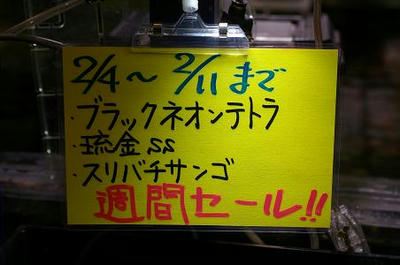 2/4～2/11まで
・ブラックネオンテトラ
・琉金SS
・スリバチサンゴ
週間セール!!